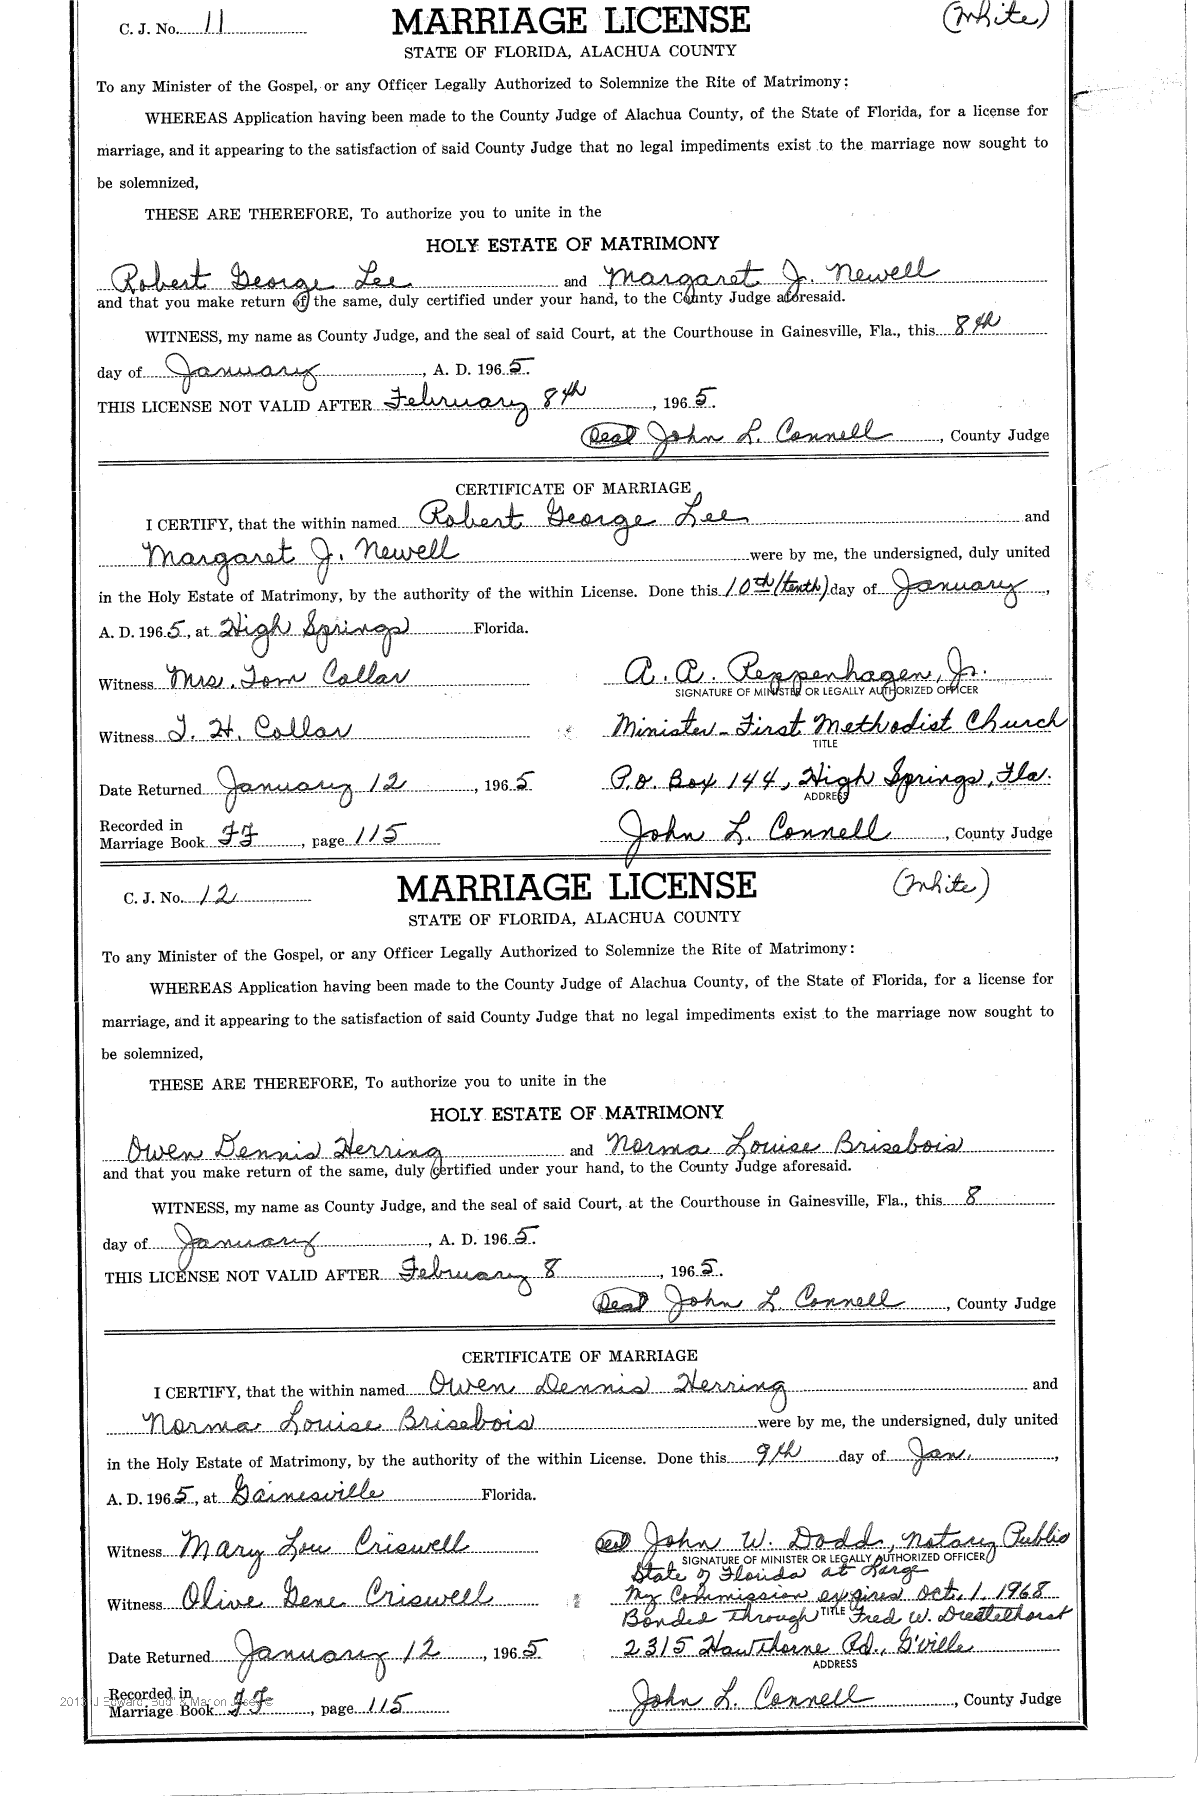 C. J. No. 11 MARRIAGE LICENSE (White)
STATE OF FLORIDA, ALACHUA COUNTY
To any Minister of the Gospel, or any Officer Legally Authorized to Solemnize the Rite of Matrimony:
WHEREAS Application having been made to the County Judge of Alachua County, of the State of Florida, for a license for
marriage, and it appearing to the satisfaction of said County Judge that no legal impediments exist to the marriage now sought to
be solemnized,
THESE ARE THEREFORE, To authorize you to unite in the
HOLY ESTATE OF MATRIMONY
Robert George Lee and Margaret J. Newell
and that you make return of the same, duly certified under your hand, to the County Judge aforesaid.
WITNESS, my name as County Judge, and the seal of said Court, at the Courthouse in Gainesville, Fla., this 8th
day of January, A. D. 1965.
THIS LICENSE NOT VALID AFTER February 8th, 1965.
(Seal) John L. Connell, County Judge
CERTIFICATE OF MARRIAGE
I CERTIFY, that the within named Robert George Lee and
Margaret J. Newell were by me, the undersigned, duly united
in the Holy Estate of Matrimony, by the authority of the within License. Done this 10th (tenth) day of January,
A. D. 1965, at High Springs Florida.
Witness Mrs. Tom Collar A. A. Reppenhagen, Jr.
SIGNATURE OF MINISTER OR LEGALLY AUTHORIZED OFFICER
Witness T. H. Collar Minister - First Methodist Church
TITLE
Date Returned January 12, 1965 P.O. Box 144, High Springs, Fla.
ADDRESS
Recorded in
Marriage Book FF, page 115 John L. Connell, County Judge
C. J. No. 12 MARRIAGE LICENSE (White)
STATE OF FLORIDA, ALACHUA COUNTY
To any Minister of the Gospel, or any Officer Legally Authorized to Solemnize the Rite of Matrimony:
WHEREAS Application having been made to the County Judge of Alachua County, of the State of Florida, for a license for
marriage, and it appearing to the satisfaction of said County Judge that no legal impediments exist to the marriage now sought to
be solemnized,
THESE ARE THEREFORE, To authorize you to unite in the
HOLY ESTATE OF MATRIMONY
Owen Dennis Herring and Norma Louise Brisebois
and that you make return of the same, duly certified under your hand, to the County Judge aforesaid.
WITNESS, my name as County Judge, and the seal of said Court, at the Courthouse in Gainesville, Fla., this 8
day of January, A. D. 1965.
THIS LICENSE NOT VALID AFTER February 8, 1965.
(Seal) John L. Connell, County Judge
CERTIFICATE OF MARRIAGE
I CERTIFY, that the within named Owen Dennis Herring and
Norma Louise Brisebois were by me, the undersigned, duly united
in the Holy Estate of Matrimony, by the authority of the within License. Done this 9th day of Jan.,
A. D. 1965, at Gainesville Florida.
Witness Mary Lou Criswell (Seal) John W. Dodd, Notary Public
SIGNATURE OF MINISTER OR LEGALLY AUTHORIZED OFFICER
State of Florida at Large
Witness Olive Gene Criswell My Commission expires Oct. 1, 1968
Bonded through Fred W.
TITLE
Date Returned January 12, 1965 2315 Hawthorne Rd., G'ville
ADDRESS
Recorded in
Marriage Book FF, page 115 John L. Connell, County Judge